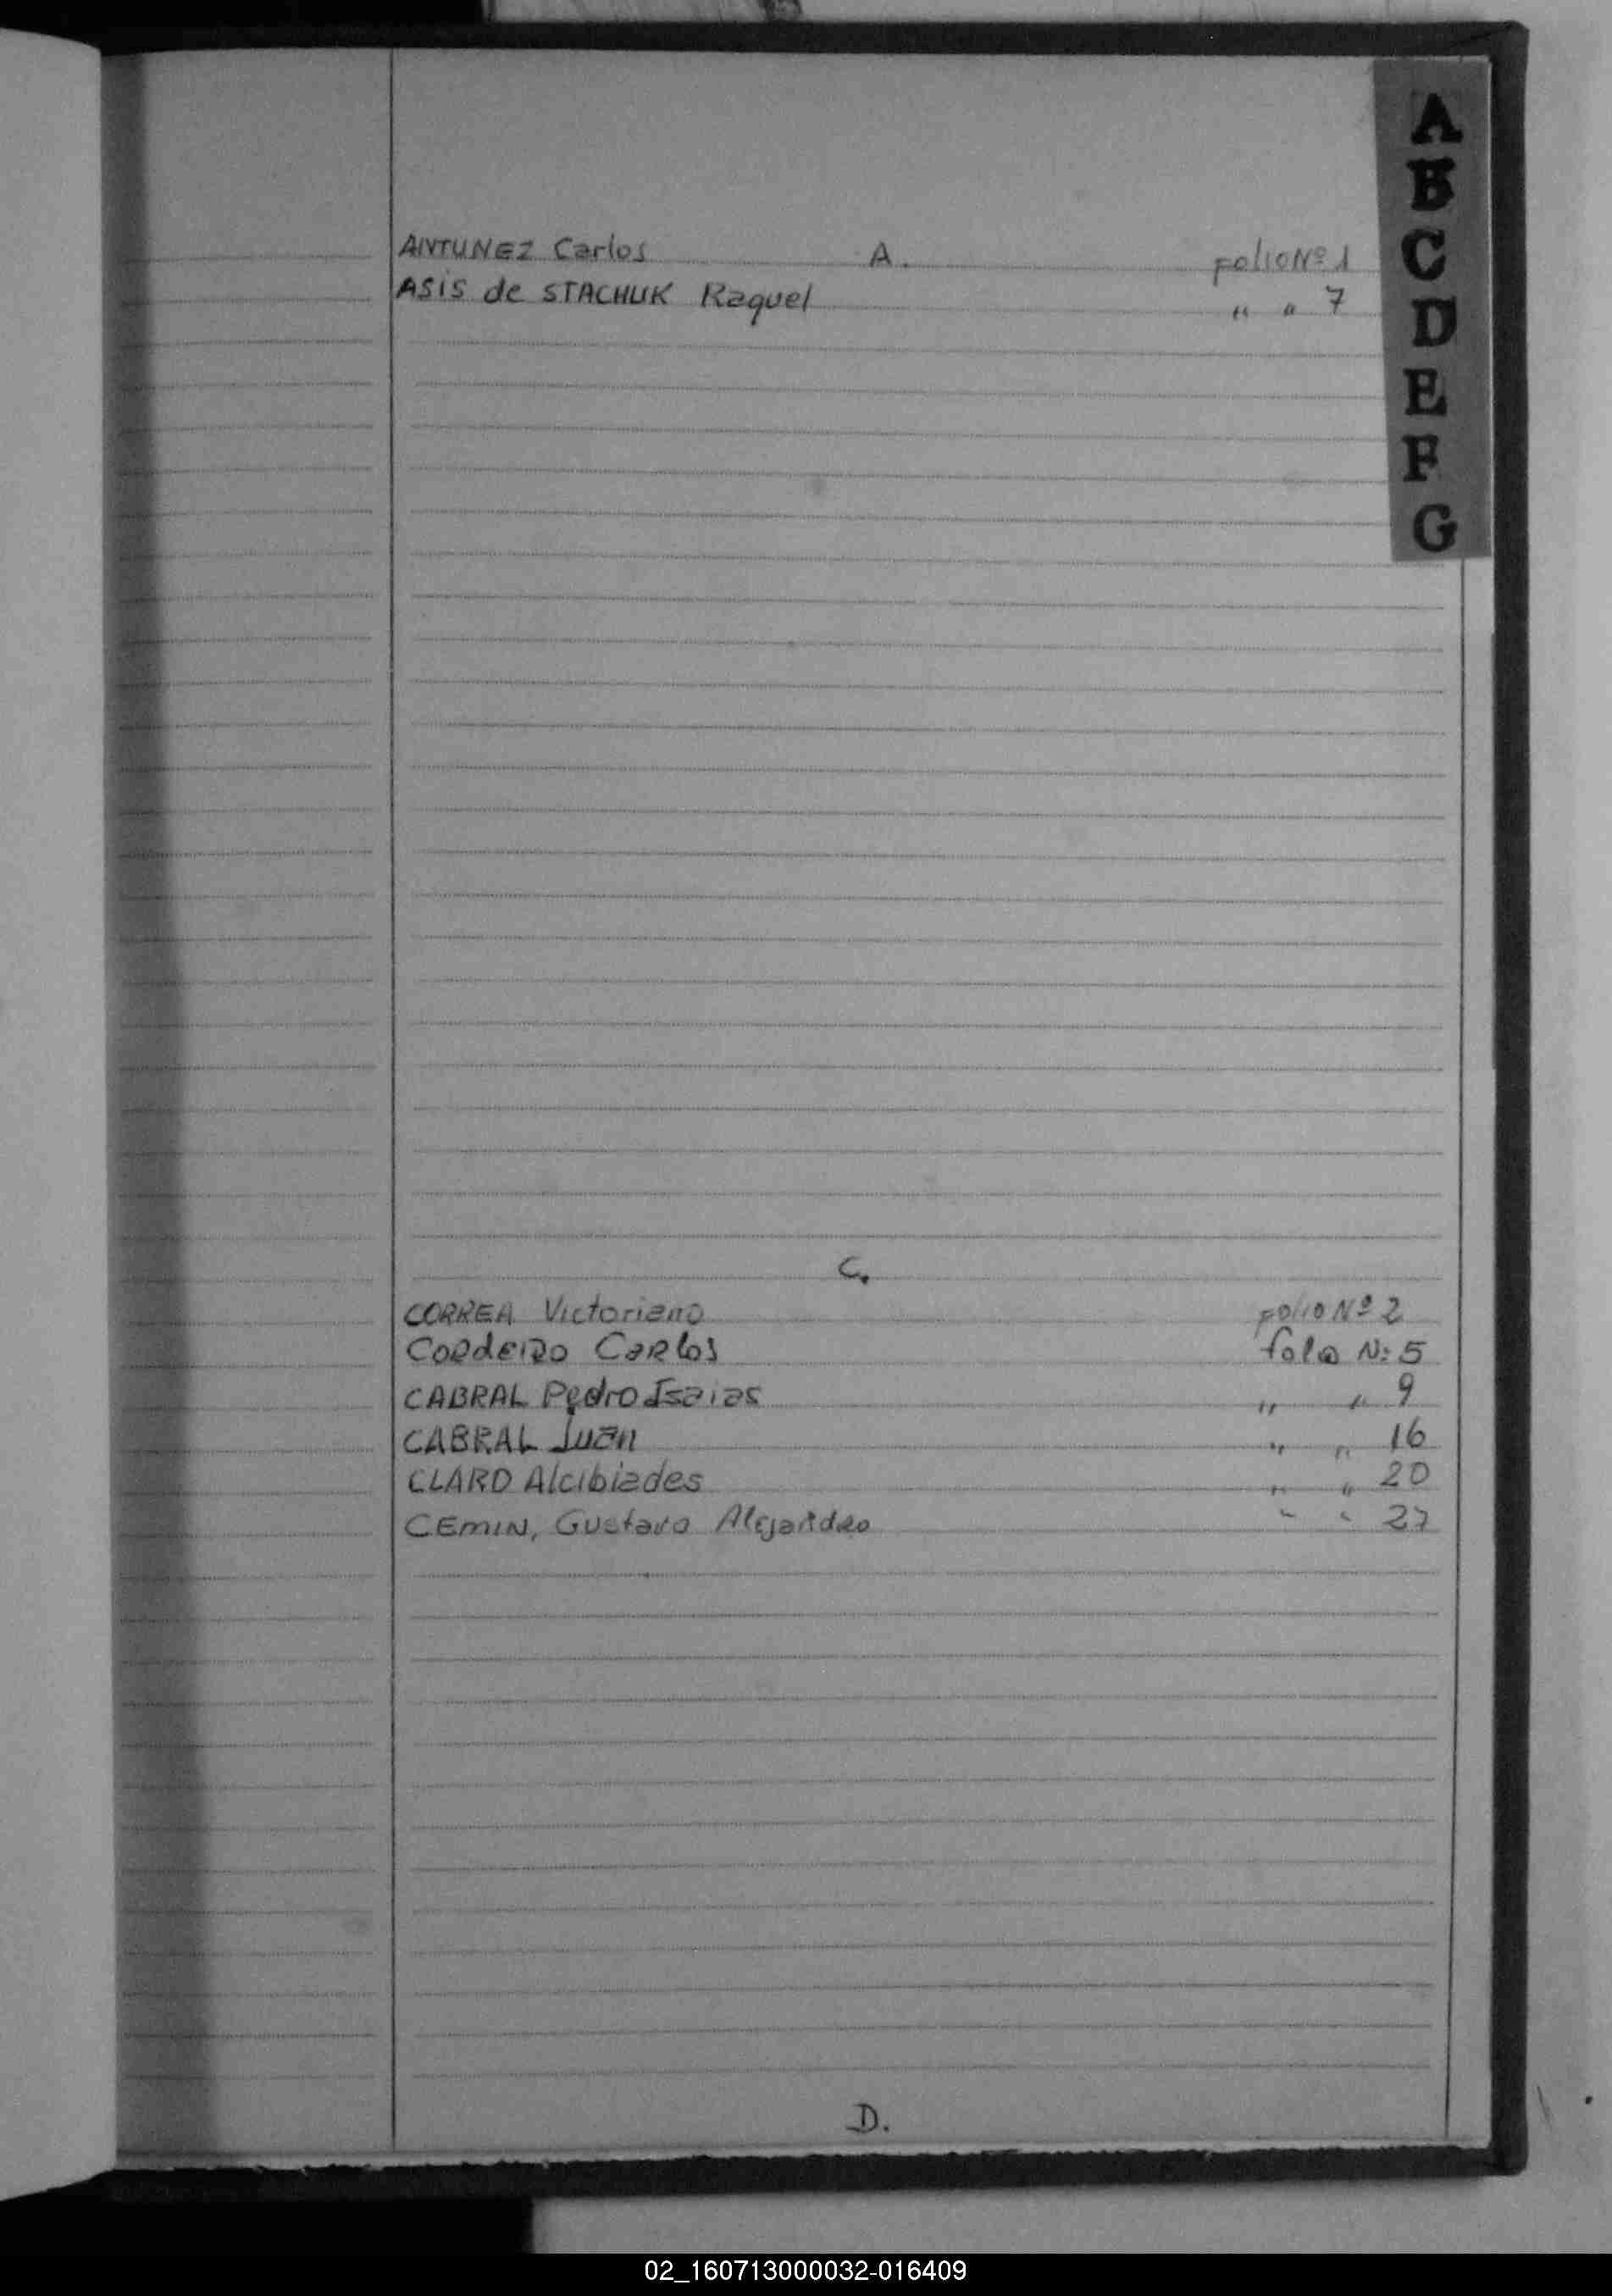 A
B
C
D
E
F
G
A.
ANTUNEZ Carlos folio Nº 1
ASIS de STACHUK Raquel " " 7
C.
CORREA Victoriano folio Nº 2
CORdEIRO CaRlos folio N: 5
CABRAL Pedro Isaias " " 9
CABRAL Juan " " 16
CLARO Alcibiades " " 20
CEMIN, Gustavo Alejandro " " 27
D.
02_160713000032-016409